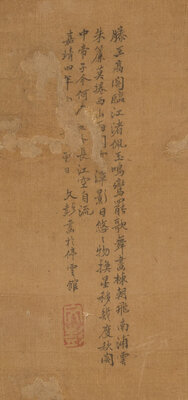 滕王高閣臨江渚佩玉鳴鸞罷歌舞畫棟朝飛南浦雲
朱簾暮捲西山雨閒雲潭影日悠悠物換星移幾度秋閣
中帝子今何在檻外長江空自流
嘉靖四年 日文彭書於停雲館